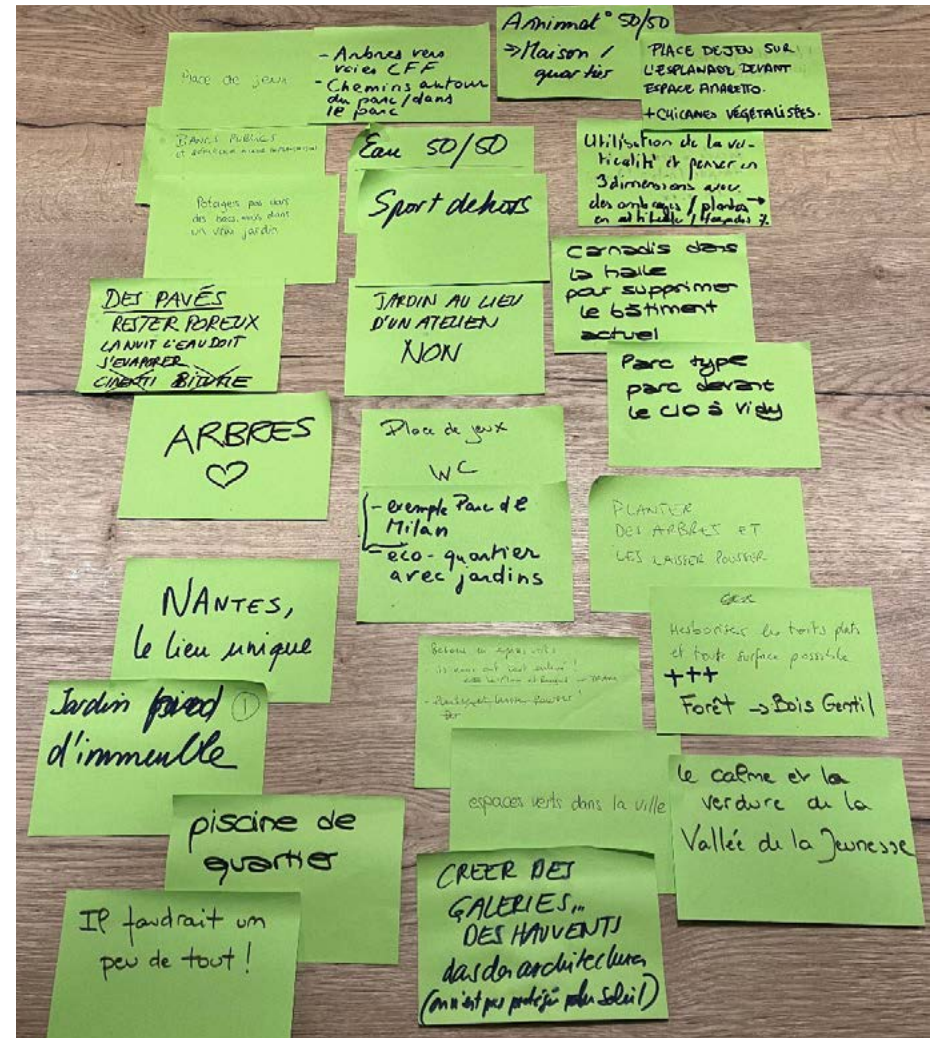 Place de jeux
- Arbres vers
voies CFF
- Chemins autour
du parc/dans
le parc
Animat° 50/50
→ Maison /
quartier
PLACE DE JEU SUR
L'ESPLANADE DEVANT
ESPACE AMARETTO.
+ CHICANES VÉGÉTALISÉES.
BANCS PUBLICS
et
Eau 50/50
Utilisation de la ver-
ticalité et penser en
3 dimensions avec
des / plantes →
en / façades
Potagers pas dans
des bacs mais dans
un vrai jardin
Sport dehors
Carnadis dans
la halle
pour supprimer
le bâtiment
actuel
DES PAVÉS
RESTER POREUX
LA NUIT L'EAU DOIT
S'EVAPORER
BITUME
JARDIN AU LIEU
D'UN ATELIER
NON
Parc type
parc devant
le CIO à Vidy
ARBRES
♡
Place de jeux
WC
- exemple Parc de
Milan
- eco-quartier
avec jardins
PLANTER
DES ARBRES ET
LES LAISSER POUSSER
NANTES,
le lieu unique
Herboriser les toits plats
et toute surface possible
+++
Forêt → Bois Gentil
Jardin pied ①
d'immeuble
espaces verts dans la ville
le calme et la
verdure de la
Vallée de la Jeunesse
piscine de
quartier
CREER DES
GALERIES...
DES HAUVENTS
dans des architectures
(on n'est pas protégé du soleil)
Il faudrait un
peu de tout !